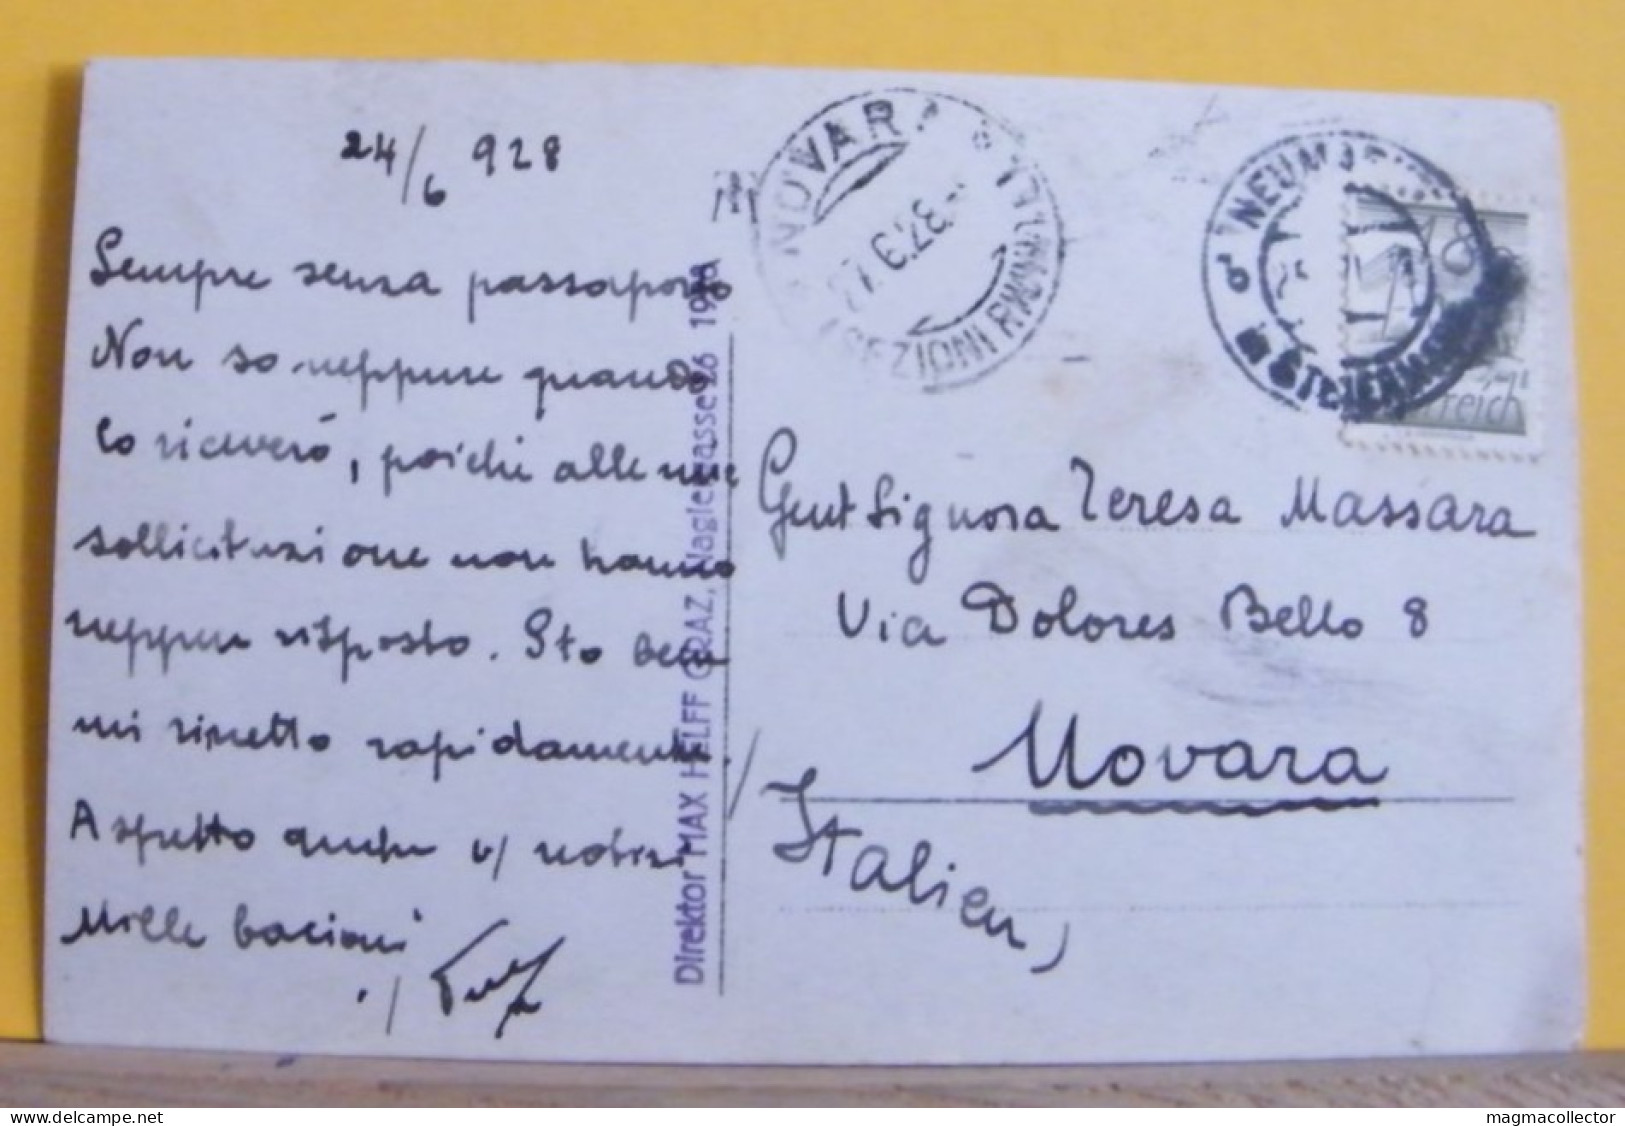 24/6 928
Sempre senza passaporto
Non so neppure quando
lo riceverò, poichè alle mie
sollicitazione non hanno
neppure risposto. Sto bene
mi rimetto rapidamente.
Aspetto anche v/ notizie
Mille bacioni
Direktor MAX HELFF GRAZ, Naglergasse 26 1928
NOVARA
27.6.28
NEUMARKT
in STEIERMARK
18
Gent Signora Teresa Massara
Via Dolores Bello 8
Novara
Italien
delcampe.net
magmacollector